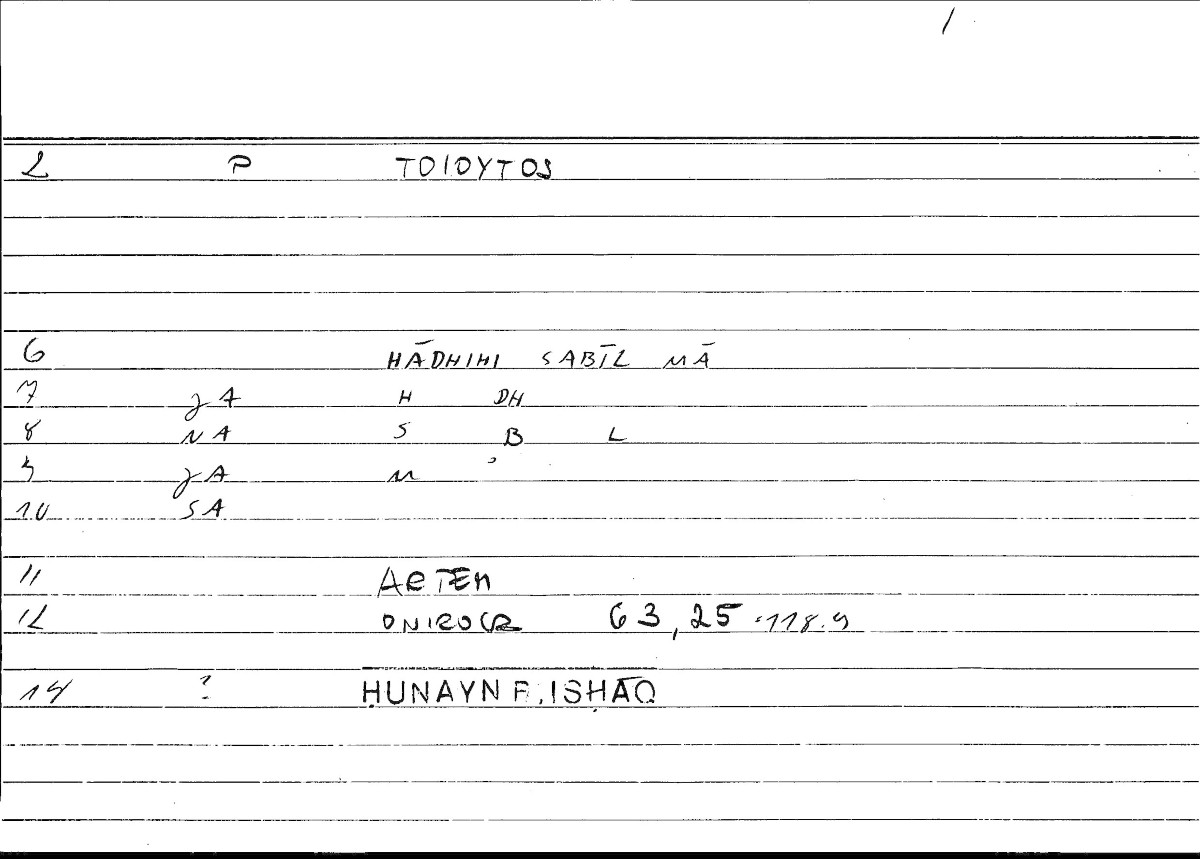 /
2 P TOIOYTOS
6 HĀDHIHI SABĪL MĀ
7 JA H DH
8 NA S B L
9 JA M ʾ
10 SA
11 ARTEM
12 ONIROCR 63,25 =118.9
14 ? ḤUNAYN B. ISḤĀQ